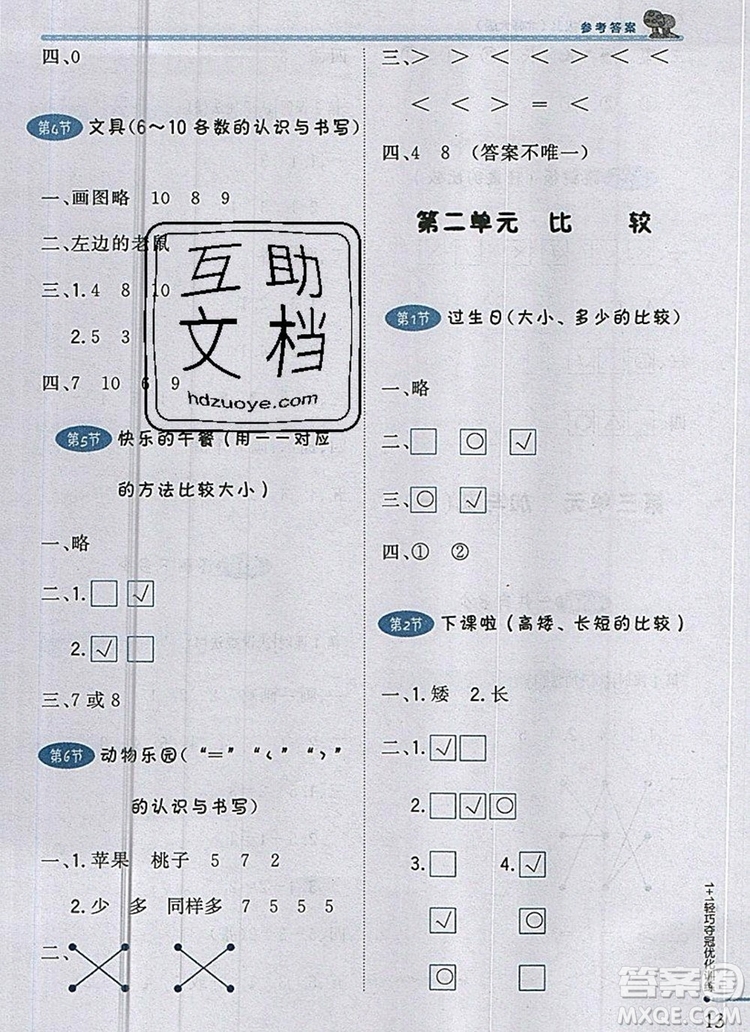 参考答案
四、0
第4节 文具(6～10各数的认识与书写)
一、画图略 10 8 9
二、左边的老鼠
三、1.4 8 10
2.5 3
四、7 10 6 9
第5节 快乐的午餐(用一一对应
的方法比较大小)
一、略
二、1.□ ☑
2.☑ □
三、7或8
第6节 动物乐园(“=”“<”“>”
的认识与书写)
一、1.苹果 桃子 5 7 2
2.少 多 同样多 7 5 5 5
二、
三、> < > > > <
< < > = <
四、4 8 (答案不唯一)
第二单元 比 较
第1节 过生日(大小、多少的比较)
一、略
二、□ ○ √
三、○ √
四、① ②
第2节 下课啦(高矮、长短的比较)
一、1.矮 2.长
二、1.√ □
2.□ √ ○
3.□ 4.√
√ ○
○ □
1+1轻巧夺冠优化训练
13
互助
文档
hdzuoye.com
答案圈
MXQE.COM